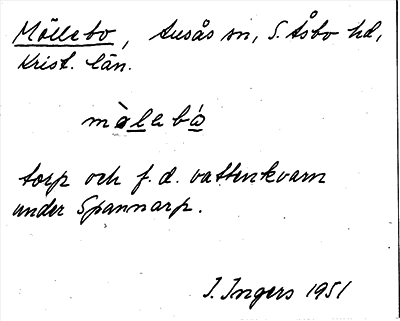 Möllebo, Ausås sn, S. Åsbo hd,
Krist. län.
mòlebó
torp och f.d. vattenkvarn
under Spannarp.
I. Ingers 1951